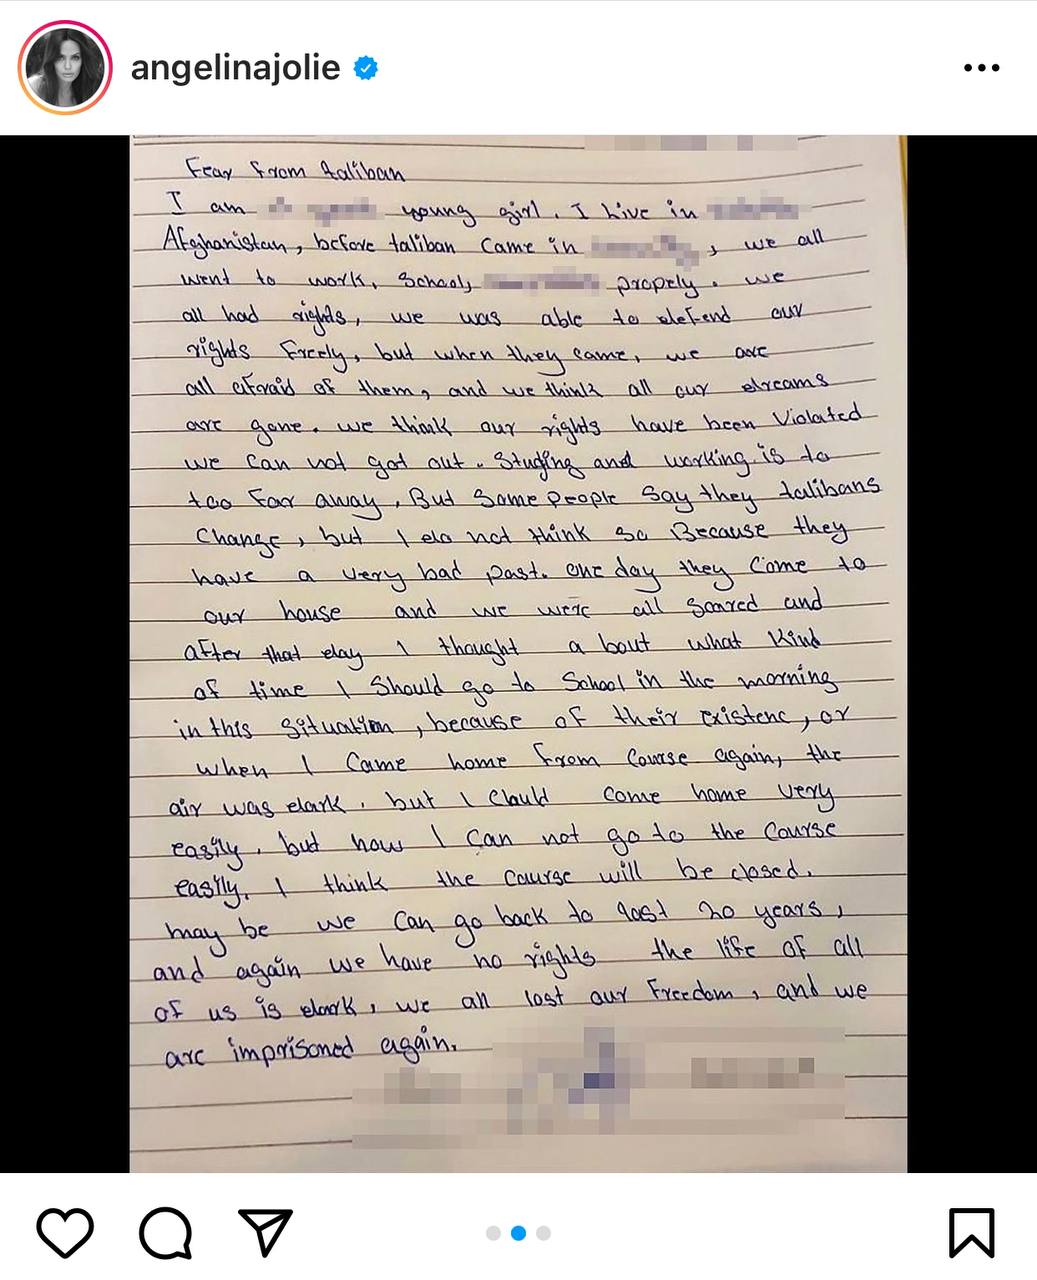 angelinajolie
Fear From taliban
I am young girl. I live in
Afghanistan, before taliban Came in , we all
went to work, School, propely. we
all had rights, we was able to defend our
rights Freely, but when they came, we are
all afraid of them, and we think all our dreams
are gone. we think our rights have been Violated
we can not got out. Studing and working is to
too Far away. But Some people Say they talibans
Change, but I do not think So Because they
have a very bad past. one day they Come to
our house and we were all Scared and
after that day I thought a bout what Kind
of time I Should go to School in the morning
in this Situation, because of their existenc, or
when I Came home From Course again, the
air was dark. but I Could come home very
easily. but now I Can not go to the Course
easily. I think the Course will be closed.
may be we Can go back to last 20 years,
and again we have no rights the life of all
of us is dark, we all lost our Freedom, and we
are imprisoned again.